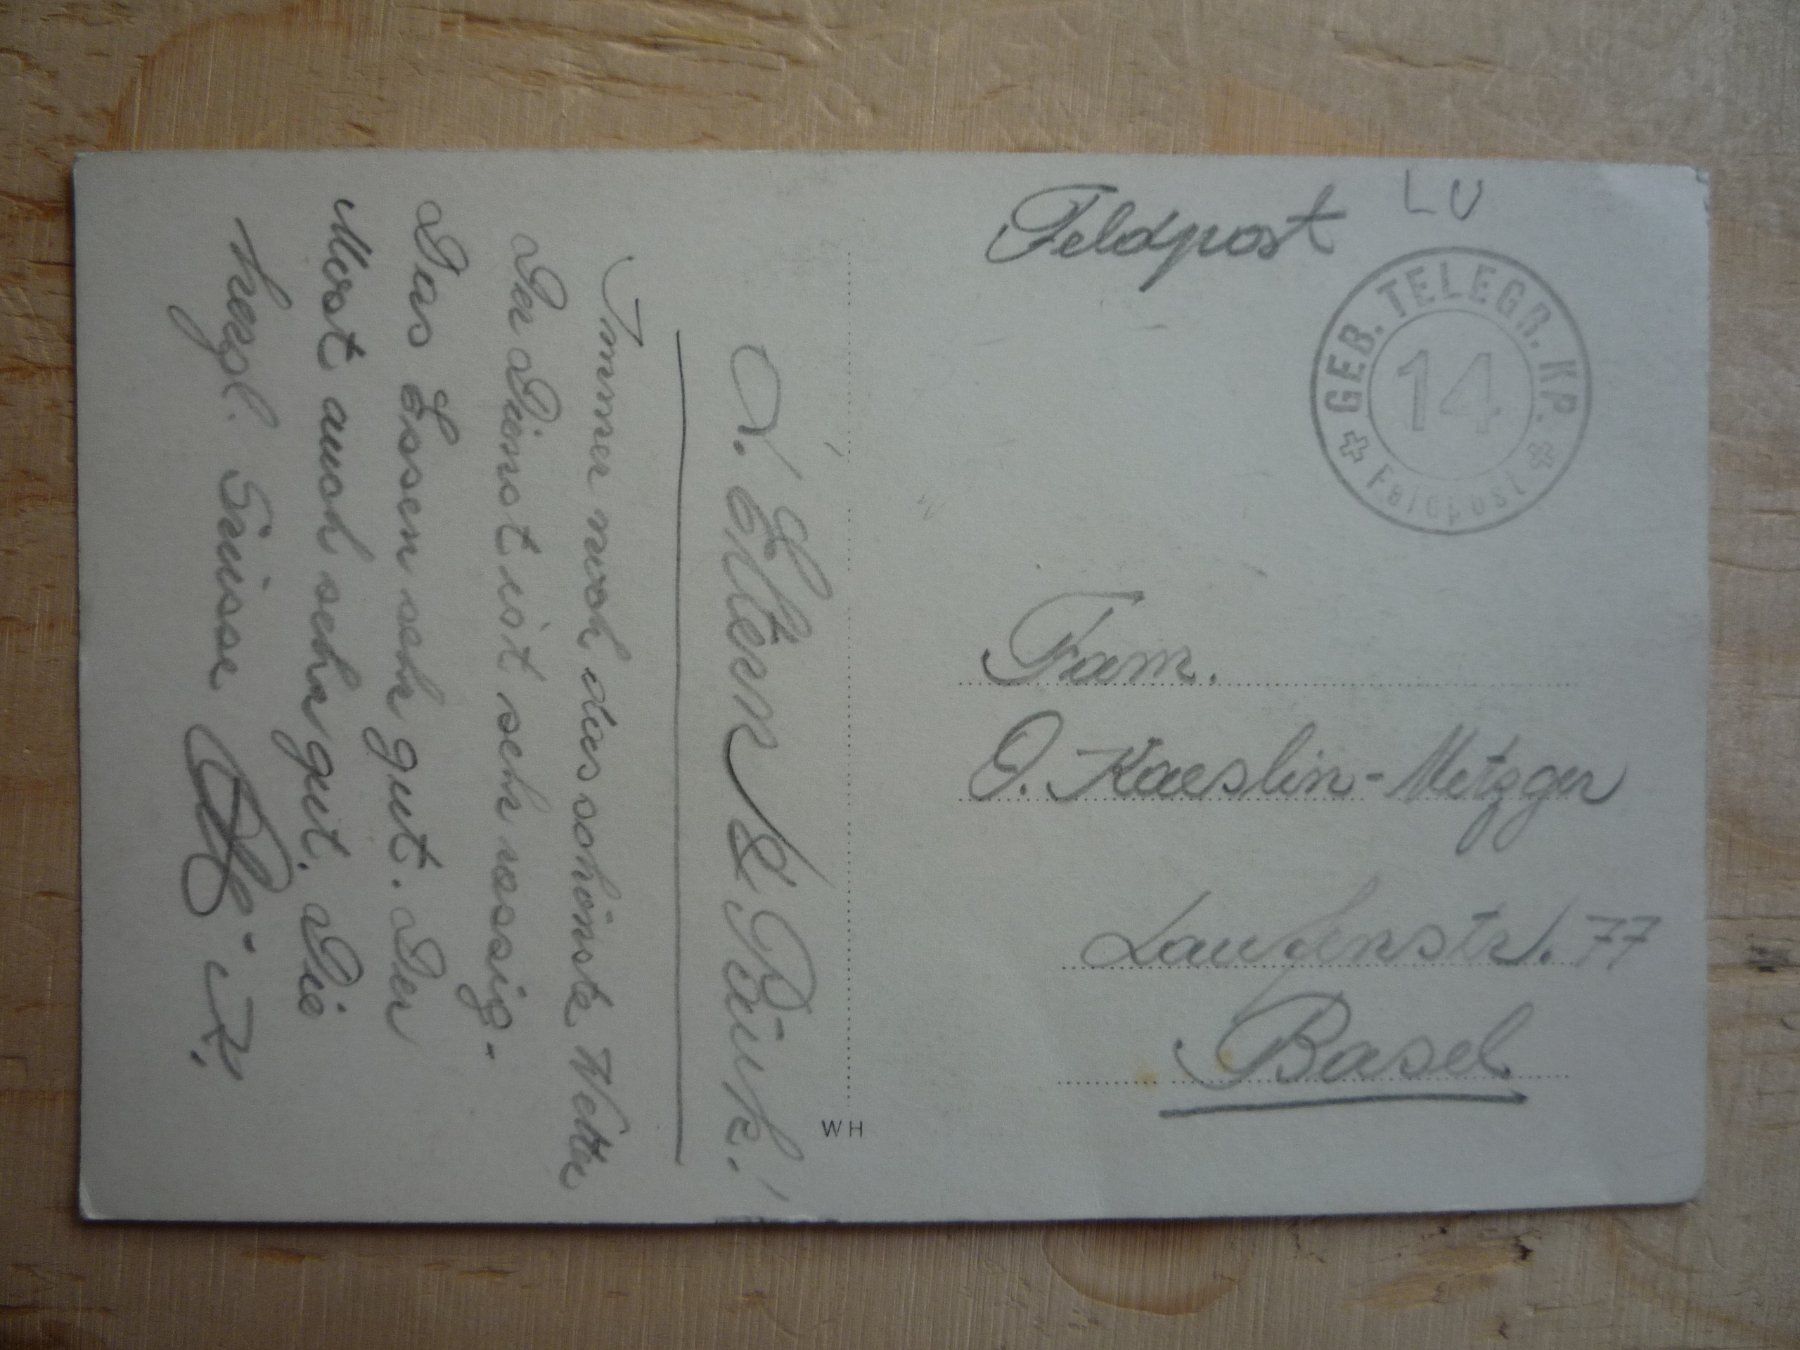 L. Eltern &
Immer noch das schönste Wetter
Der Dienst ist sehr rassig.
Das Essen sehr gut. Der
Most auch sehr gut. Die
herzl. Grüsse
Feldpost
LU
GEB. TELEGR. KP.
14
Feldpost
Fam.
O. Kaeslin-Metzger
Laufenstr. 77
Basel
WH